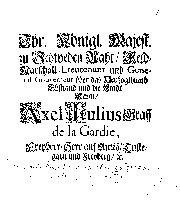 Ihr. Königl. Majest.
zu Schweden Raht/ Feld-
Marschall-Lieutenant und Gene-
ral Gouverneur über das Hertzogthumb
Ehstland und die Stadt
Reval/
Axel Julius Graff
de la Gardie,
Freyherr/ Herr auff
und